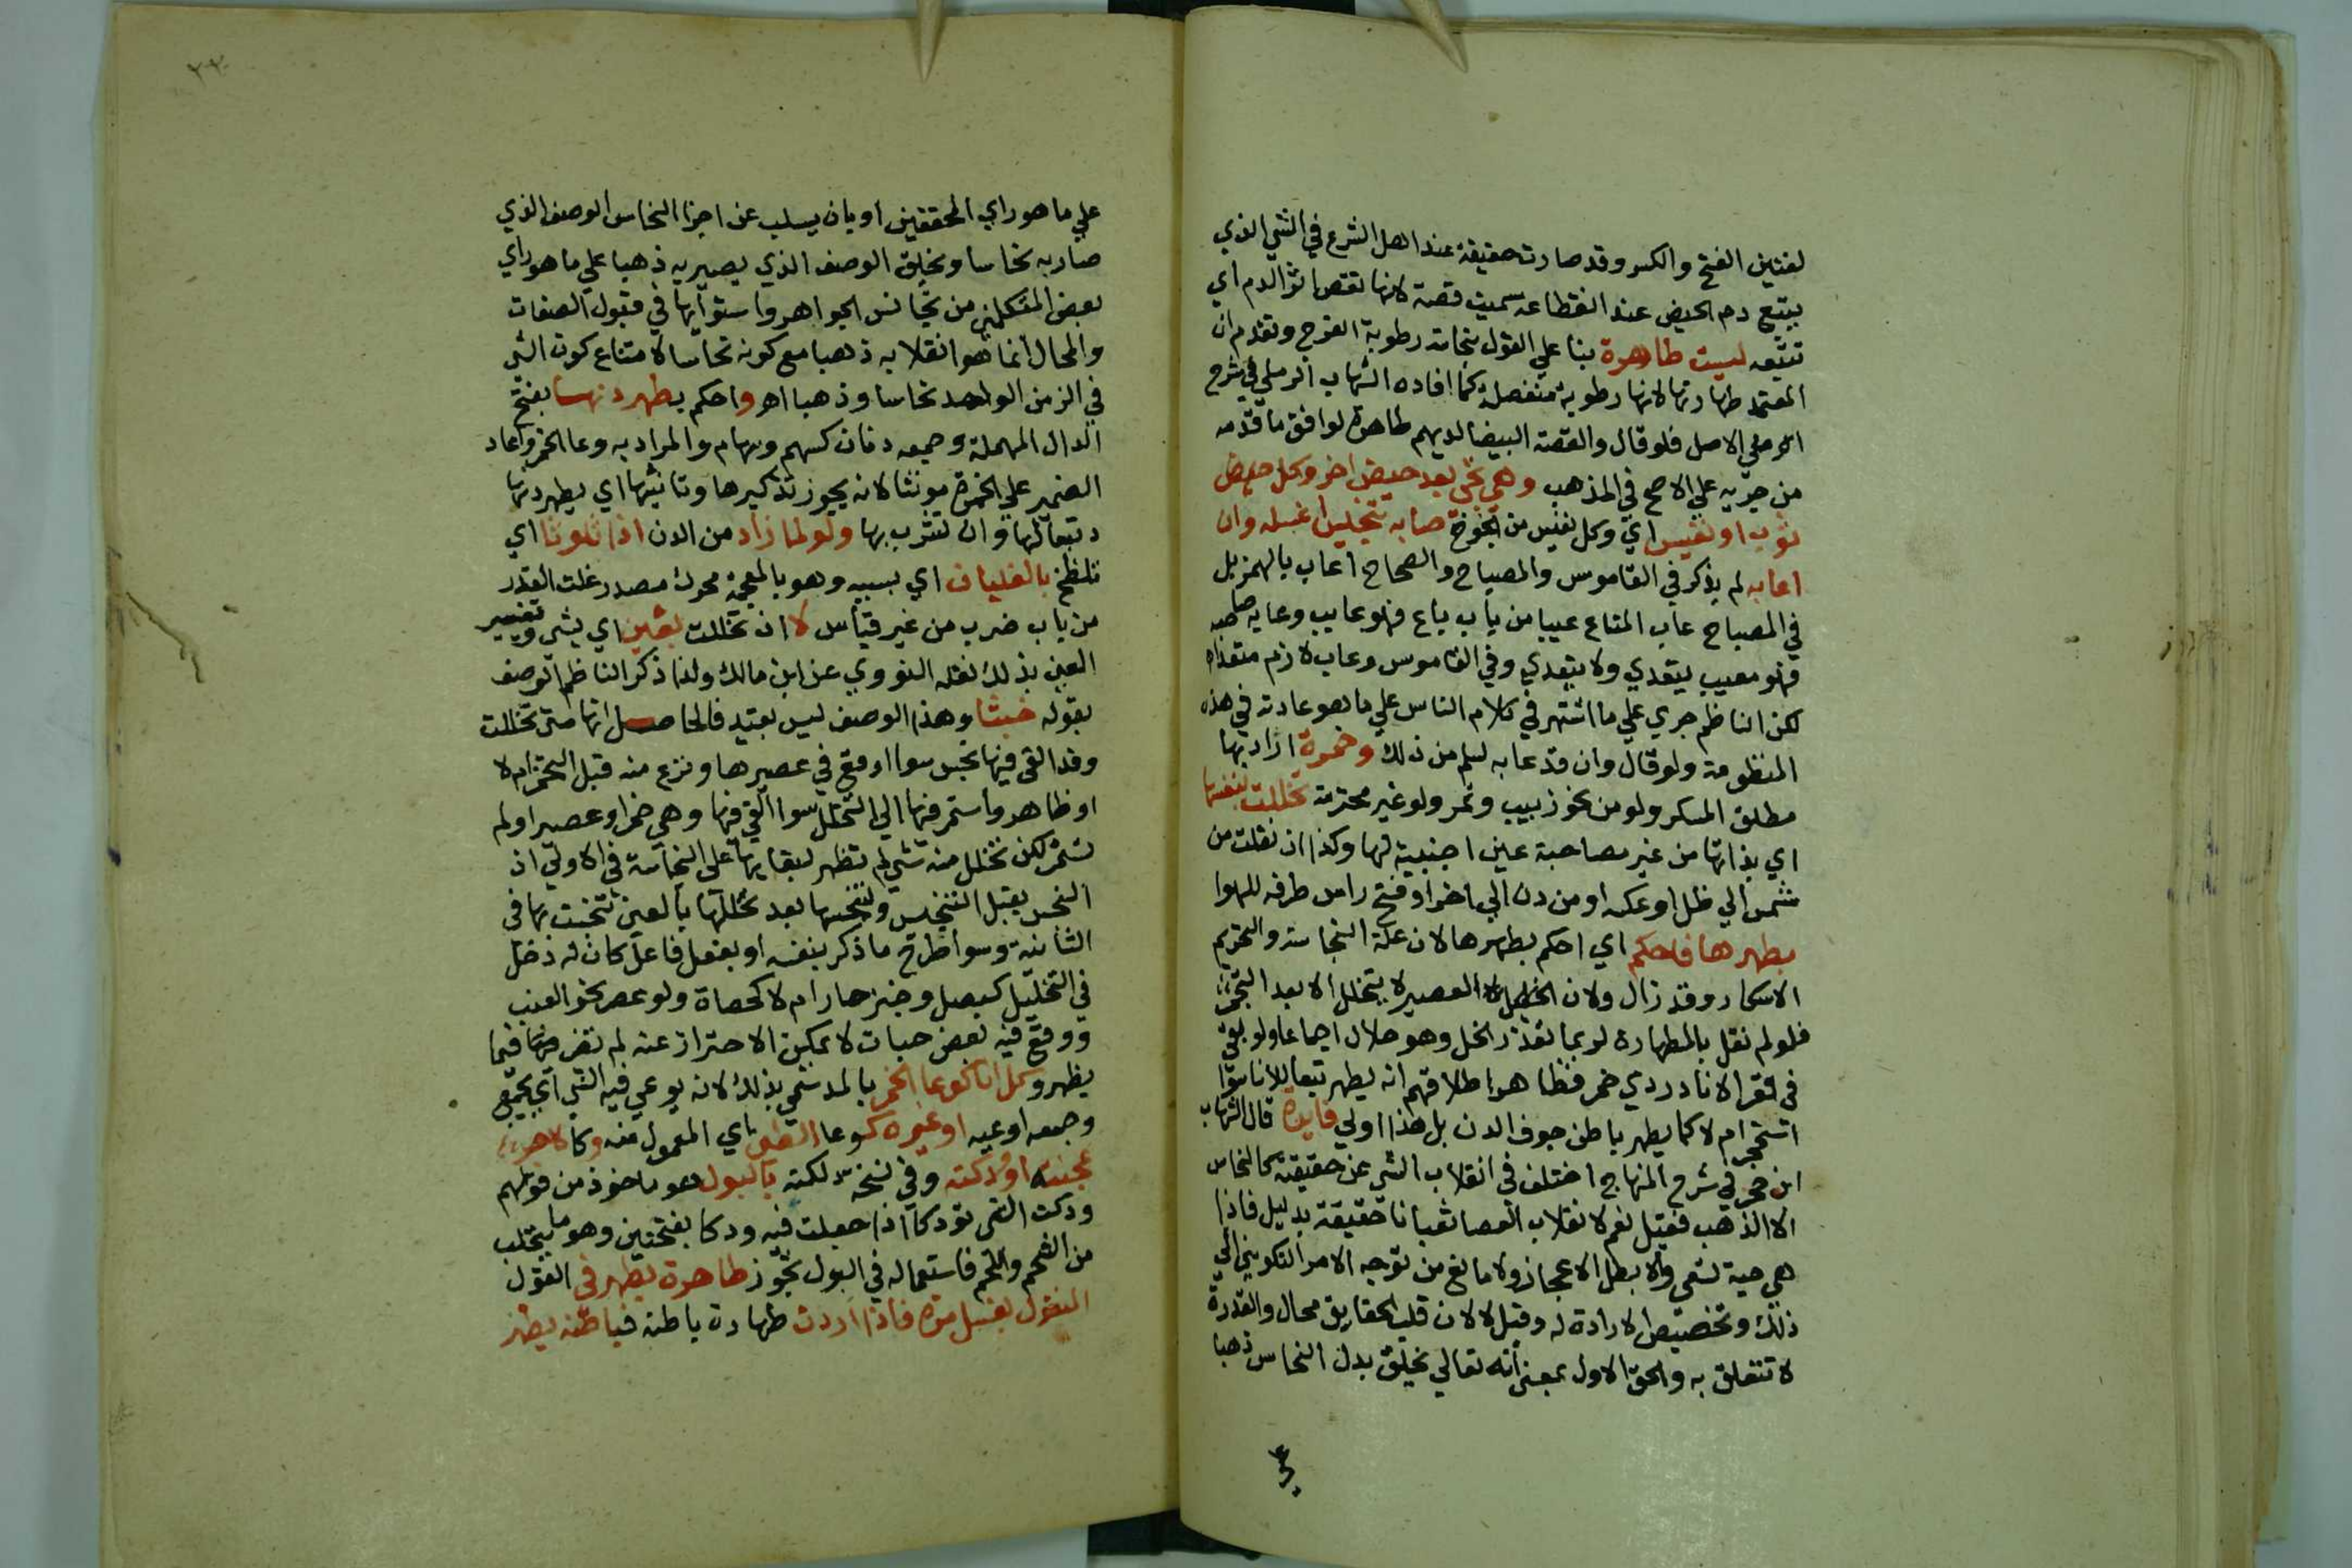 لغتين الفتح والكسر وقد صارت حقيقة عند اهل الشرع في الشي الذي
يتبع دم الحيض عند انقطاعه سميت قصة لانها تقص اثر الدم اي
تتبعه ليست طاهرة بنا علي القول بنجاسة رطوبة الفرج وتقدم ان
المعتمد طهارتها لانها رطوبة منفصلة كما افاده الشهاب الرملي في شرح
الاصل فلو قال والقصة البيضا لديهم طاهرة لوافق ما قدمه
من جريه علي الاصح في المذهب وهي تجي بعد حيض اخر وكل حيض
ثوب او نفيس اي وكل نفيس من الجوخ صابه تنجيس اغسله وان
اعابه لم يذكر في القاموس والمصباح والصحاح اعاب بالهمز بل
في المصباح عاب المتاع عيبا من باب باع فهو عايب وعابه صاحبه
فهو معيب يتعدي ولا يتعدي وفي القاموس وعاب لازم متعداه
لكن الناظم جري علي ما اشتهر في كلام الناس علي ما هو عادته في هذه
المنظومة ولو قال وان قد عابه لسلم من ذلك وخمرة اراد بها
مطلق المسكر ولو من نحو زبيب وتمر ولو غير محترمة تخللت بنفسها
اي بذاتها من غير مصاحبة عين اجنبية لها وكذا ان نقلت من
شمس الي ظل او عكسه او من دن الي اخر او فتح راس ظرفه للهوا
بطهرها فاحكم اي احكم بطهرها لان علة النجاسة والتحريم
الاسكار وقد زال ولان العصير لا يتخلل الا بعد التخمر
فلو لم نقل بالطهارة لربما تعذر الخل وهو حلال اجماعا ولو بقي
في قعر الانا دردي خمر فظاهر اطلاقهم انه يطهر تبعا للانا سوا
استحجر ام لا كما يطهر باطن جوف الدن بل هذا اولي فايدة قال الشهاب
ابن حجر في شرح المنهاج اختلف في انقلاب الشي عن حقيقته كالنحاس
الا الذهب فقيل نعم لانقلاب العصا ثعبانا حقيقة بدليل فاذا
هي حية تسعي والا بطل الاعجاز ولا مانع من توجه الامر التكويني الي
ذلك وتخصيص الارادة له وقيل لا لان قلب الحقايق محال والقدرة
لا تتعلق به والحق الاول بمعني انه تعالي يخلق بدل النحاس ذهبا
علي
٣٣
علي ما هو راي المحققين او بان يسلب عن اجزا النحاس الوصف الذي
صار به نحاسا ويخلق الوصف الذي يصير به ذهبا علي ما هو راي
بعض المتكلمين من تجانس الجواهر واستوايها في قبول الصفات
والمحال انما هو انقلابه ذهبا مع كونه نحاسا لامتناع كون الشي
في الزمن الواحد نحاسا وذهبا اهـ واحكم بطهر دنها بفتح
الدال المهملة وجمعه دنان كسهم وسهام والمراد به وعا الخمر واعاد
الضمير علي الخمرة مونثا لانه يجوز تذكيرها وتانيثها اي يطهر دنها
تبعا لها وان تشرب بها ولو لما زاد من الدن اذا تلوثا اي
تلطخ بالغليان اي بسببه وهو بالمعجمة محرك مصدر غلت القدر
من باب ضرب من غير قياس لا ان تخللت بعين اي بشي وتفسير
العين بذلك نقله النووي عن ابن مالك ولذا ذكر الناظم الوصف
بقوله خبثا وهذا الوصف ليس بقيد فالحاصل انها متي تخللت
وقد القي فيها نجس سوا وقع في عصيرها ونزع منه قبل التخمر ام لا
او طاهر واستمر فيها الي التخلل سوا القي فيها وهي خمر او عصير اولم
يستمر لكن تخلل منه شي لم تطهر لبقايها علي النجاسة في الاولي اذ
النجس يقبل التنجيس ولتنجسها بعد تخللها بالعين التي تنجست بها في
الثانية وسوا طرح ما ذكر بنفسه او بفعل فاعل كان له دخل
في التخليل كبصل وخبز حار ام لا كحصاة ولو عصر نحو العنب
ووقع فيه بعض حبات لا يمكن الاحتراز عنه لم تضر فيما
يظهر وكل انا كوعا الخمر بالمد سمي بذلك لانه يوعي فيه الشي اي يجمع
وجمعه اوعية او غيره كوعا الطين اي المعمول منه
عجنته او ودكته وفي نسخة لكته بالبول هو ماخوذ من قولهم
ودكت الشي تودكا اذا جعلت فيه ودكا بفتحتين وهو ما يتحلب
من الشحم واللحم فاستعماله في البول تجوز طاهرة يطهر في القول
المنقول بغسل مرة فاذا اردت طهارة باطنه فباطنه يطهر